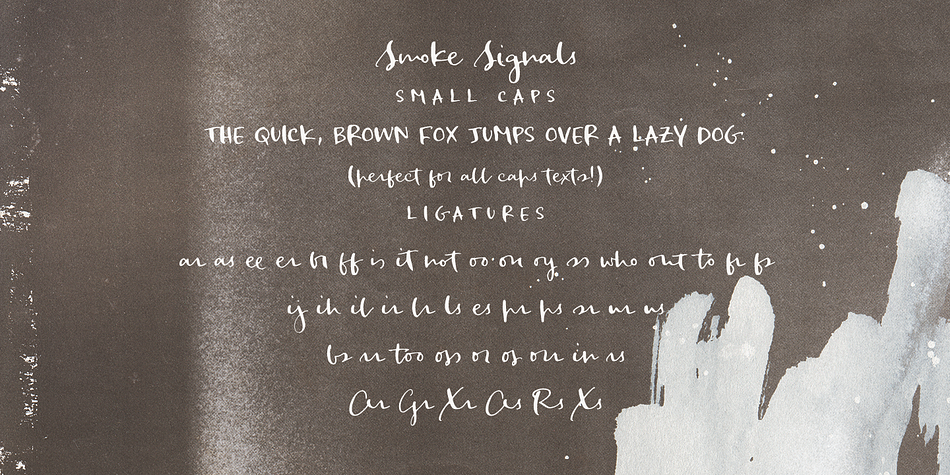 Smoke Signals
SMALL CAPS
THE QUICK, BROWN FOX JUMPS OVER A LAZY DOG.
(perfect for all caps texts!)
LIGATURES
ar as ee er ff is it not oo on oy ss who out to fr fs
ij ih il ir lr ls es pr ps sr ur us
bs rr too os or of our in rs
Ar Gr Xr As Rs Xs